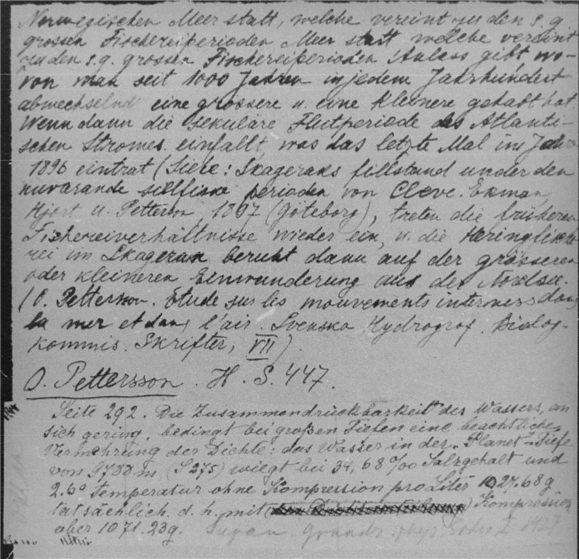 Norwegischen Meer statt, welche vereint zu den s.g.
grossen Fischereiperioden Meer statt welche vereint
zu den s.g. grossen Fischereiperioden Anlass gibt wo-
von man seit 1000 Jahren in jedem Jahrhundert
abwechselnd eine grössere u. eine kleinere gehabt hat
Wenn dann die sekuläre Flutperiode des Atlanti-
schen Stromes einfällt was das letzte Mal im Jahre
1896 eintrat (Siehe: Skageraks tillstand under den
nuvarande sillfiske perioden von Cleve. Ekman
Hjort u. Petterson, 1897 (Göteborg), treten die früheren
Fischereiverhältnisse wieder ein, u. die Heringfische
rei im Skagerak beruht dann auf der grösseren
oder kleineren Einwanderung aus der Nordsee.
(O. Petterson. Etude sur les mouvements internes dans
la mer et dans l'air. Svenska Hydrogrof. Biolog-
kommis. Skrifter, VII).
O. Pettersson. H. S. 447.
Seite 292. Die Zusammendrückbarkeit des Wassers, an
sich gering, bedingt bei großen Tiefen eine beachtliche
Vermehrung der Dichte: das Wasser in der "Planet"-Tiefe
von 9788 m (S 275) wiegt bei 34,68 ‰ Salzgehalt und
2.6° Temperatur ohne Kompression pro Liter 1027.68 g
tatsächlich, d. h. mit Kompression
aber 1071,23g. Supan Grundz. phys. Erdk. I 1927